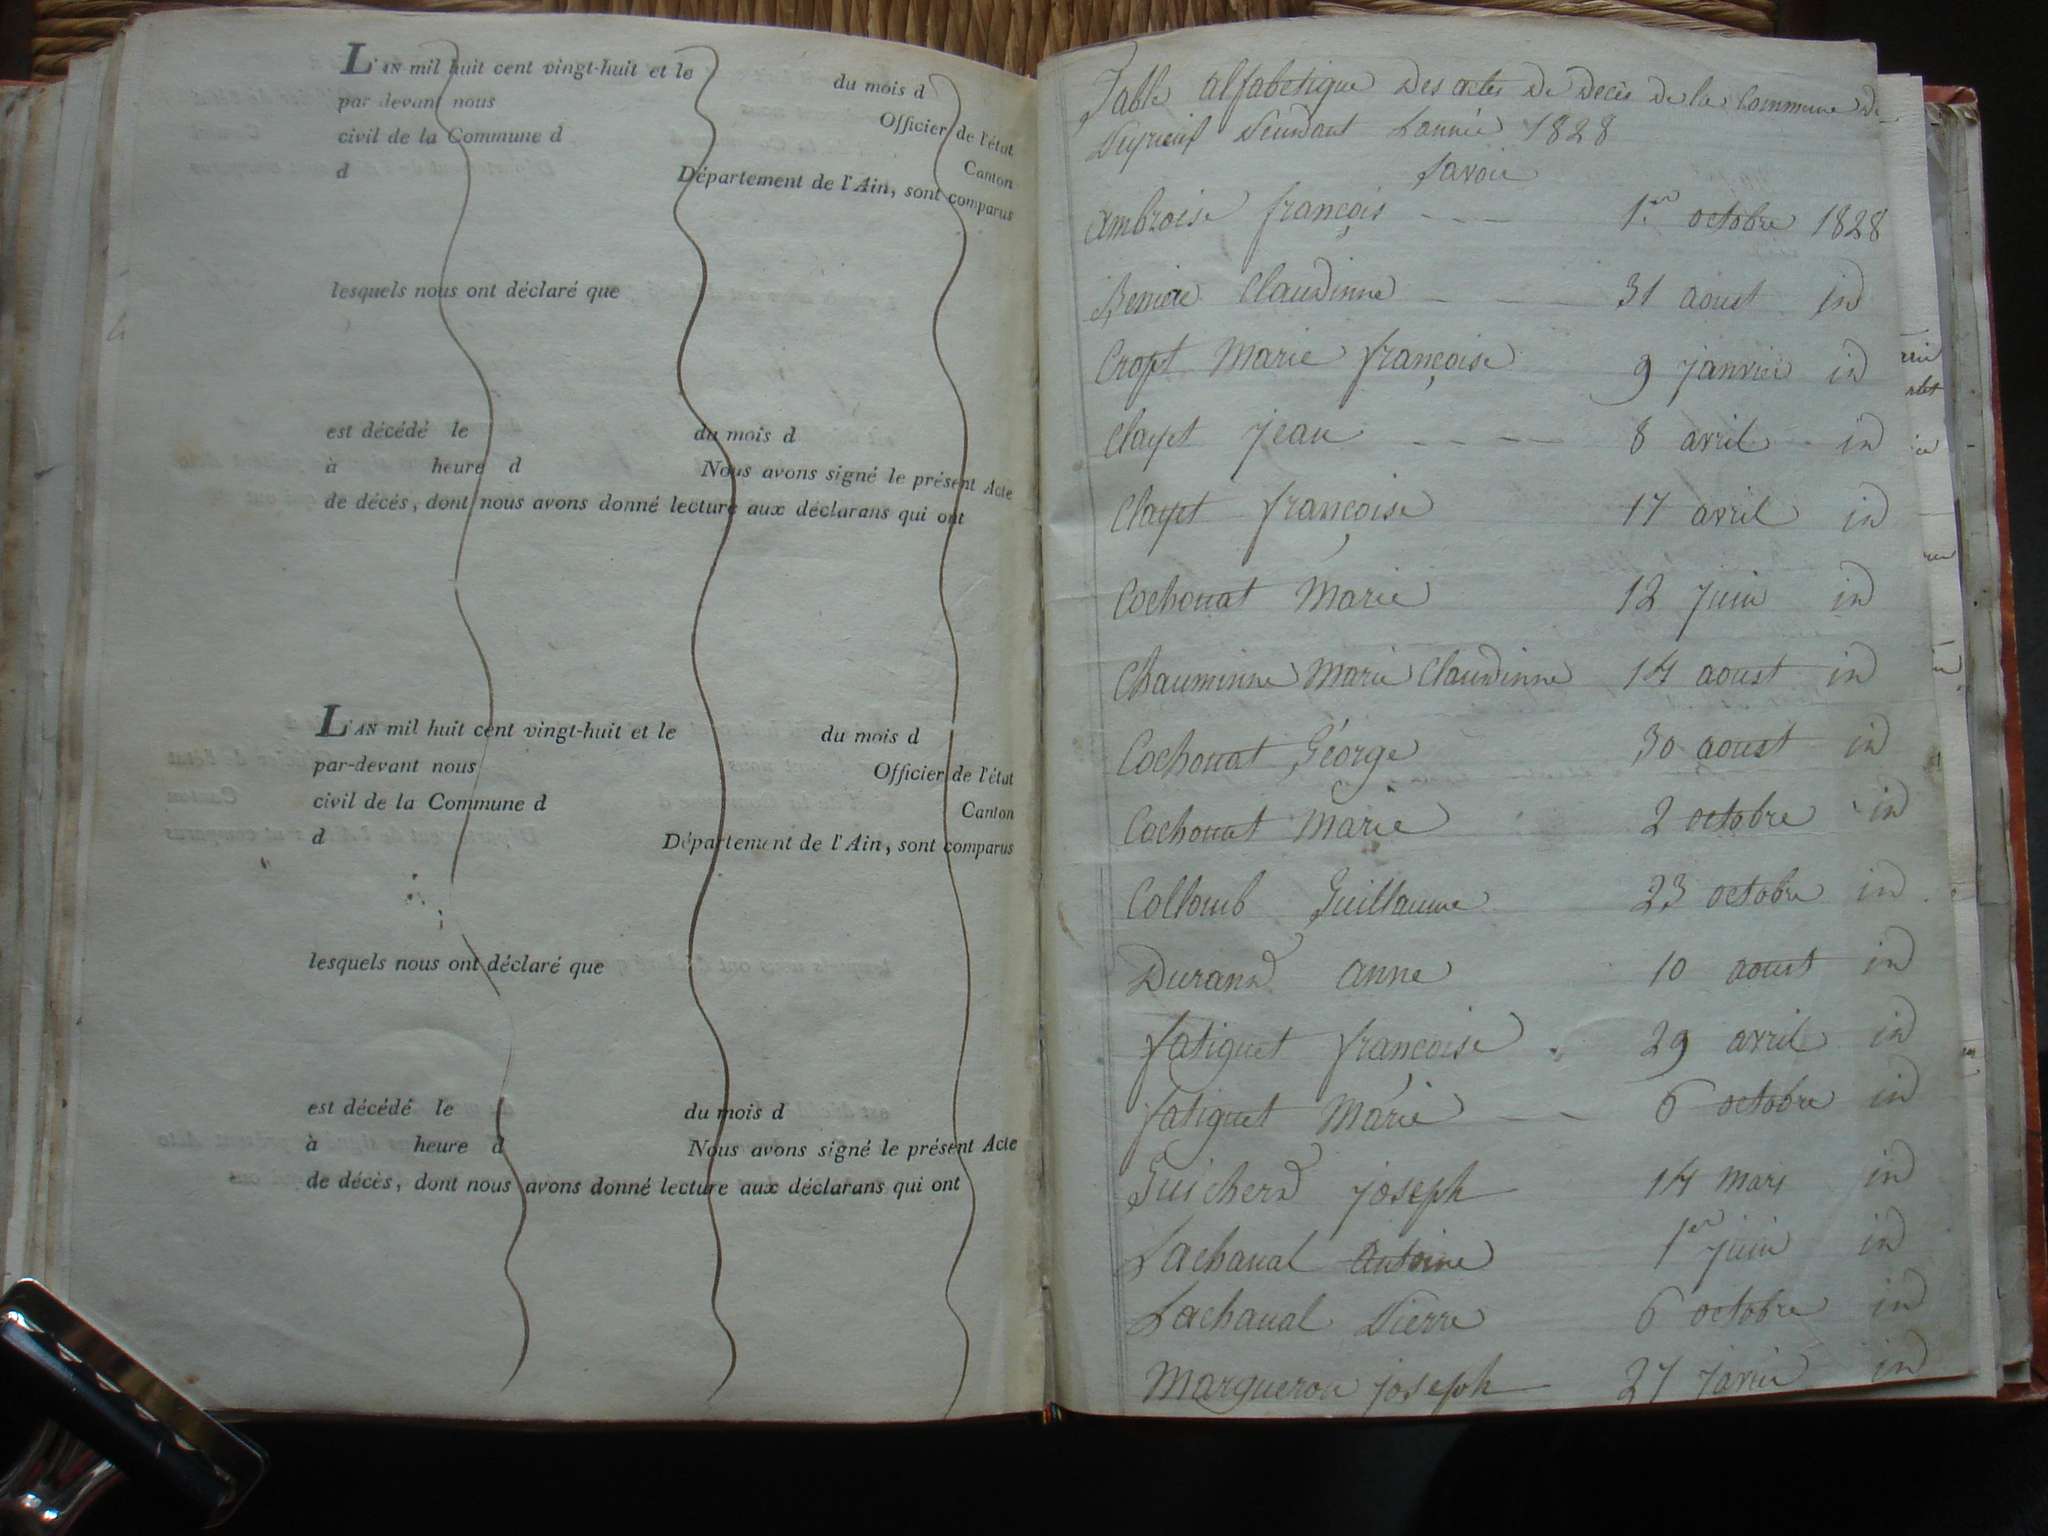 L'AN mil huit cent vingt-huit et le du mois d
par devant nous Officier de l'état
civil de la Commune d Canton
d Département de l'Ain, sont comparus
lesquels nous ont déclaré que
est décédé le du mois d
à heure d Nous avons signé le présent Acte
de décés, dont nous avons donné lecture aux déclarans qui ont
L'AN mil huit cent vingt-huit et le du mois d
par-devant nous Officier de l'état
civil de la Commune d Canton
d Département de l'Ain, sont comparus
lesquels nous ont déclaré que
est décédé le du mois d
à heure d Nous avons signé le présent Acte
de décès, dont nous avons donné lecture aux déclarans qui ont
Table alfabetique Des actes De Decès De la Commune De
Peyrieux Pendant L'année 1828
Savoir
Ambroise françois 1.er octobre 1828
Claudinne 31 aoust id
Cropt Marie françoise 9 janvier id
Clayet jean 8 avril id
Clayet françoise 17 avril id
Cochonat Marie 12 juin id
Chauminne Marie Claudinne 14 aoust id
Cochonat George 30 aoust id
Cochonat Marie 2 octobre id
Colloub Guillaume 23 octobre id
Durand anne 10 aoust id
fatiguet françoise 29 avril id
fatiguet Marie 6 octobre id
Guicherd joseph 14 mars id
Lachaval Antoine 1er juin id
Lachaval Pierre 6 octobre id
Margueron joseph 27 janvier id